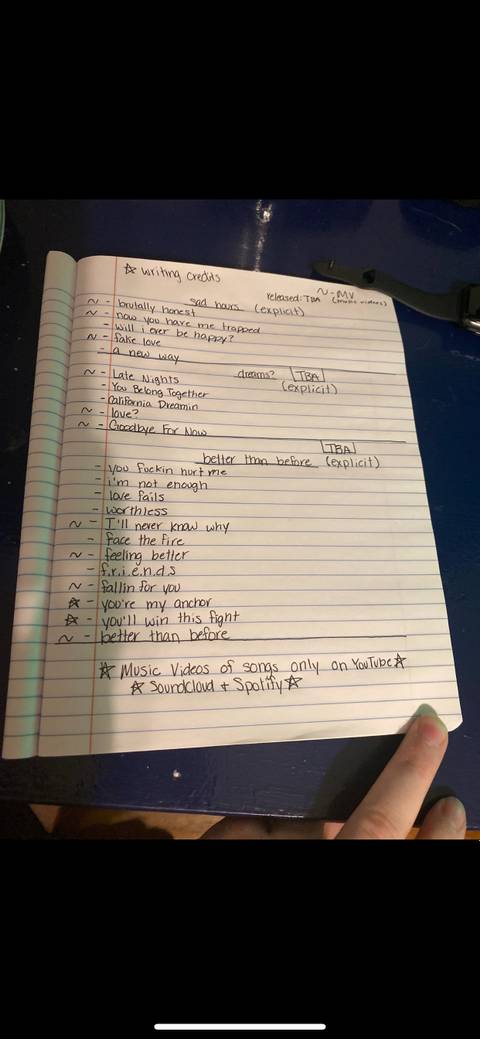 ☆ writing credits
~ - MV
(music videos)
released: TBA
sad hours (explicit)
~ - brutally honest
~ - now you have me trapped
- will i ever be happy?
~ - fake love
- a new way
dreams? TBA
(explicit)
~ - Late Nights
- You Belong Together
- California Dreamin
~ - love?
~ - Goodbye For Now
TBA
better than before (explicit)
- you fuckin hurt me
- i'm not enough
- love fails
- worthless
~ - I'll never know why
- face the fire
~ - feeling better
- f.r.i.e.n.d.s
~ - fallin for you
☆ - you're my anchor
☆ - you'll win this fight
~ - better than before
☆ Music Videos of songs only on YouTube ☆
☆ Soundcloud + Spotify ☆